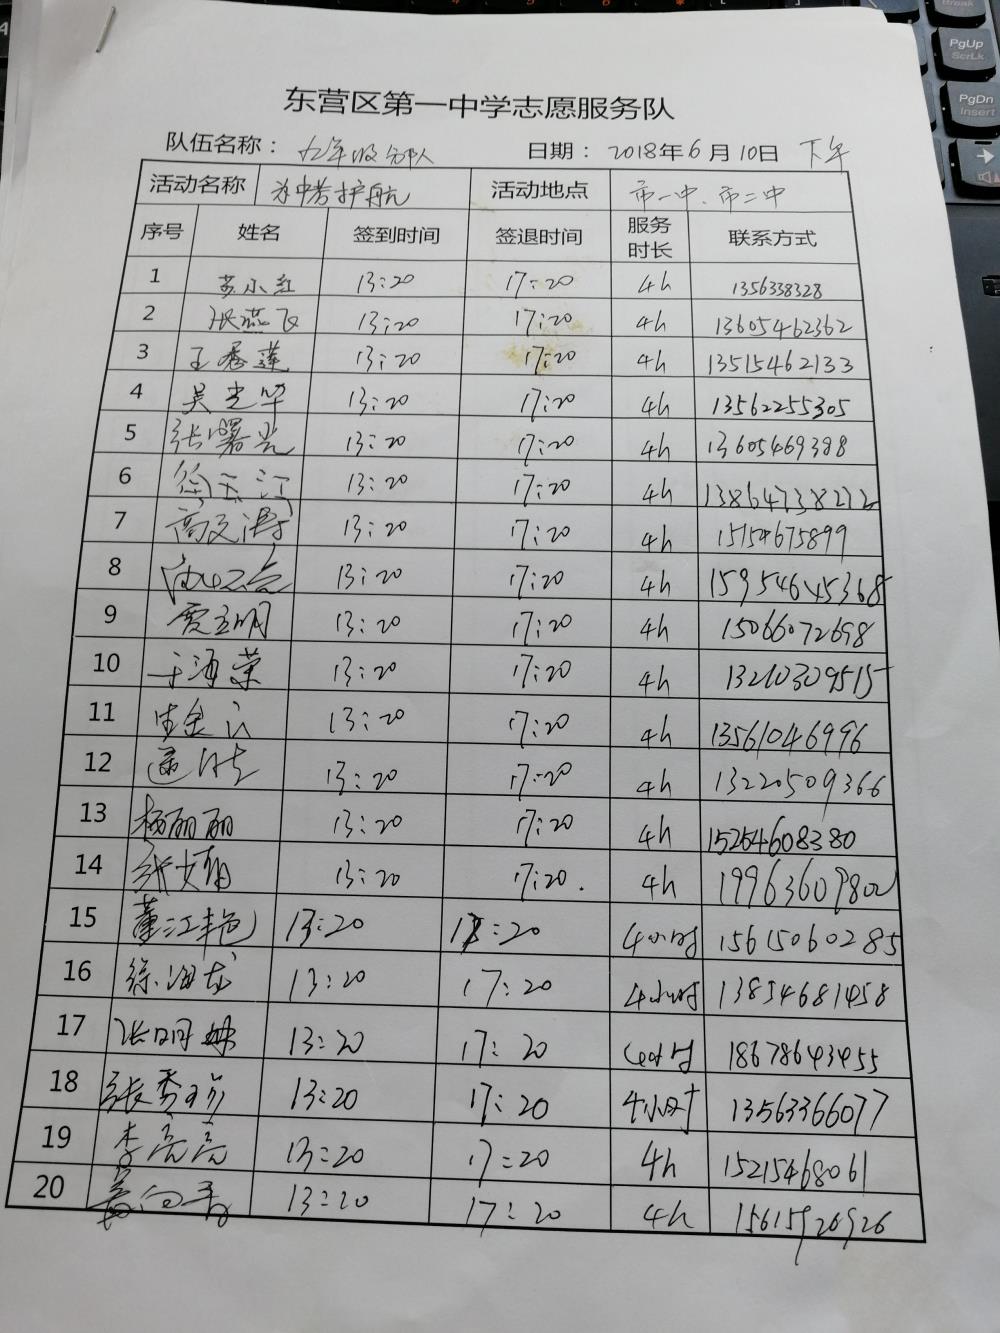 东营区第一中学志愿服务队
队伍名称： 九年级分队 日期： 2018年6月10日 下午
活动名称 为中考护航 活动地点 市一中、市二中
序号 姓名 签到时间 签退时间 服务时长 联系方式
1 苏小红 13:20 17:20 4h 1356338328
2 张燕飞 13:20 17:20 4h 13605462362
3 王春莲 13:20 17:20 4h 13515462133
4 吴光华 13:20 17:20 4h 13562255305
5 张曙光 13:20 17:20 4h 13605469398
6 徐玉江 13:20 17:20 4h
7 高文涛 13:20 17:20 4h 15154675899
8 13:20 17:20 4h 15954645368
9 贾立明 13:20 17:20 4h 15066072698
10 于海荣 13:20 17:20 4h 13210309515
11 13:20 17:20 4h 13561046996
12 13:20 17:20 4h 13220509366
13 杨丽丽 13:20 17:20 4h 15254608380
14 张文娟 13:20 17:20. 4h 19963609802
15 董江艳 13:20 17:20 4小时 15615060285
16 徐海龙 13:20 17:20 4小时 13854681458
17 张明姝 13:20 17:20 18678643455
18 张秀珍 13:20 17:20 4小时 13563366077
19 李亮亮 13:20 17:20 4h 15215468061
20 13:20 17:20 4h 15615926926
PgUp
ScrLk
PgDn
Insert
Break